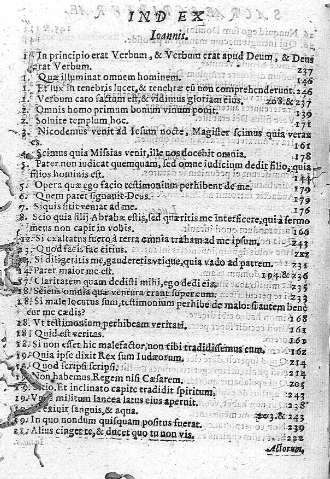 INDEX
Ioannis.
In principio erat Verbum, & Verbum erat apud Deum, & Deus
erat Verbum. 237
Quæ illuminat omnem hominem. 146
Et lux in tenebris lucet, & tenebræ eū non comprehenderunt. 246
Verbum caro factum est, & vidimus gloriam eius. 208. & 237
Omnis homo primum bonum vinum ponit. 239
2. Soluite templum hoc.
3. Nicodemus venit ad Iesum nocte, Magister scimus quia verax
es. 161
4. Scimus quia Messias venit, ille nos docebit omnia. 178
5. Pater non iudicat quemquam, sed omne iudicium dedit filio, quia
filius hominis est.
5. Opera quæ ego facio testimonium perhibent de me. 179
6. Quem pater signauit Deus.
7. Siquis sitit veniat ad me.
8. Scio quia filii Abrahæ estis, sed quæritis me interficere, quia sermo
meus non capit in vobis.
12. Si exaltatus fuero à terra omnia traham ad me ipsum. 243
Quod facis fac citius.
14. Si diligeretis me, gauderetis vtique, quia vado ad patrem. 235
14. Pater maior me est. 194. & 236
17. Claritatem quam dedisti mihi, ego dedi eis. 235
18. Sciens omnia quæ ventura erant super eum. 233
18. Si male locutus sum, testimonium perhibe de malo: si autem bene
cur me cædis? 168
18. Vt testimonium perhibeam veritati. 161
18. Quid est veritas.
18. Si non esset hic malefactor, non tibi tradidissemus eum. 162
19. Quia ipse dixit Rex sum Iudæorum. 214
Quod scripsi scripsi.
Non habemus Regem nisi Cæsarem. 205
Et inclinato capite tradidit spiritum. 243
19. Vnus militum lancea latus eius aperuit. 238
exiuit sanguis, & aqua. 203. & 243
19. In quo nondum quisquam positus fuerat. 239
21. Alius cinget te, & ducet quo tu non vis. 232
Actorum.